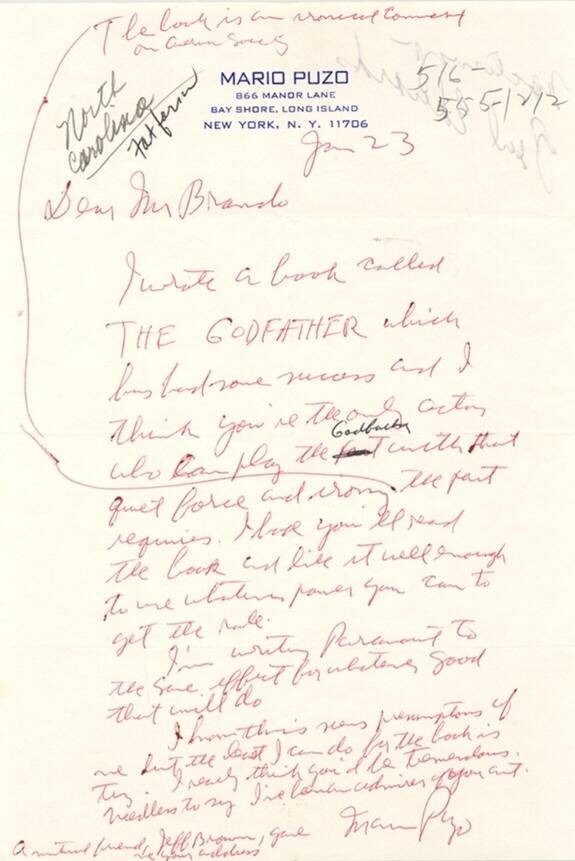 The book is an ironical comment
on American Society
North
Carolina
Fat farm
MARIO PUZO
866 MANOR LANE
BAY SHORE, LONG ISLAND
NEW YORK, N. Y. 11706
516-
555-1212
Jan 23
Dear Mr Brando
I wrote a book called
THE GODFATHER which
has had some success and I
think you're the only actor
Godfather
who can play the part with that
quiet force and irony the part
requires. I hope you'll read
the book and like it well enough
to use whatever power you can to
get the role.
I'm writing Paramount to
the same effect for whatever good
that will do
I know this was presumptous of
me but the least I can do for the book is
try. I really think you'd be tremendous.
Needless to say I've been an admirer of your art.
Mario Puzo
A mutual friend, Jeff Brown, gave
me your address